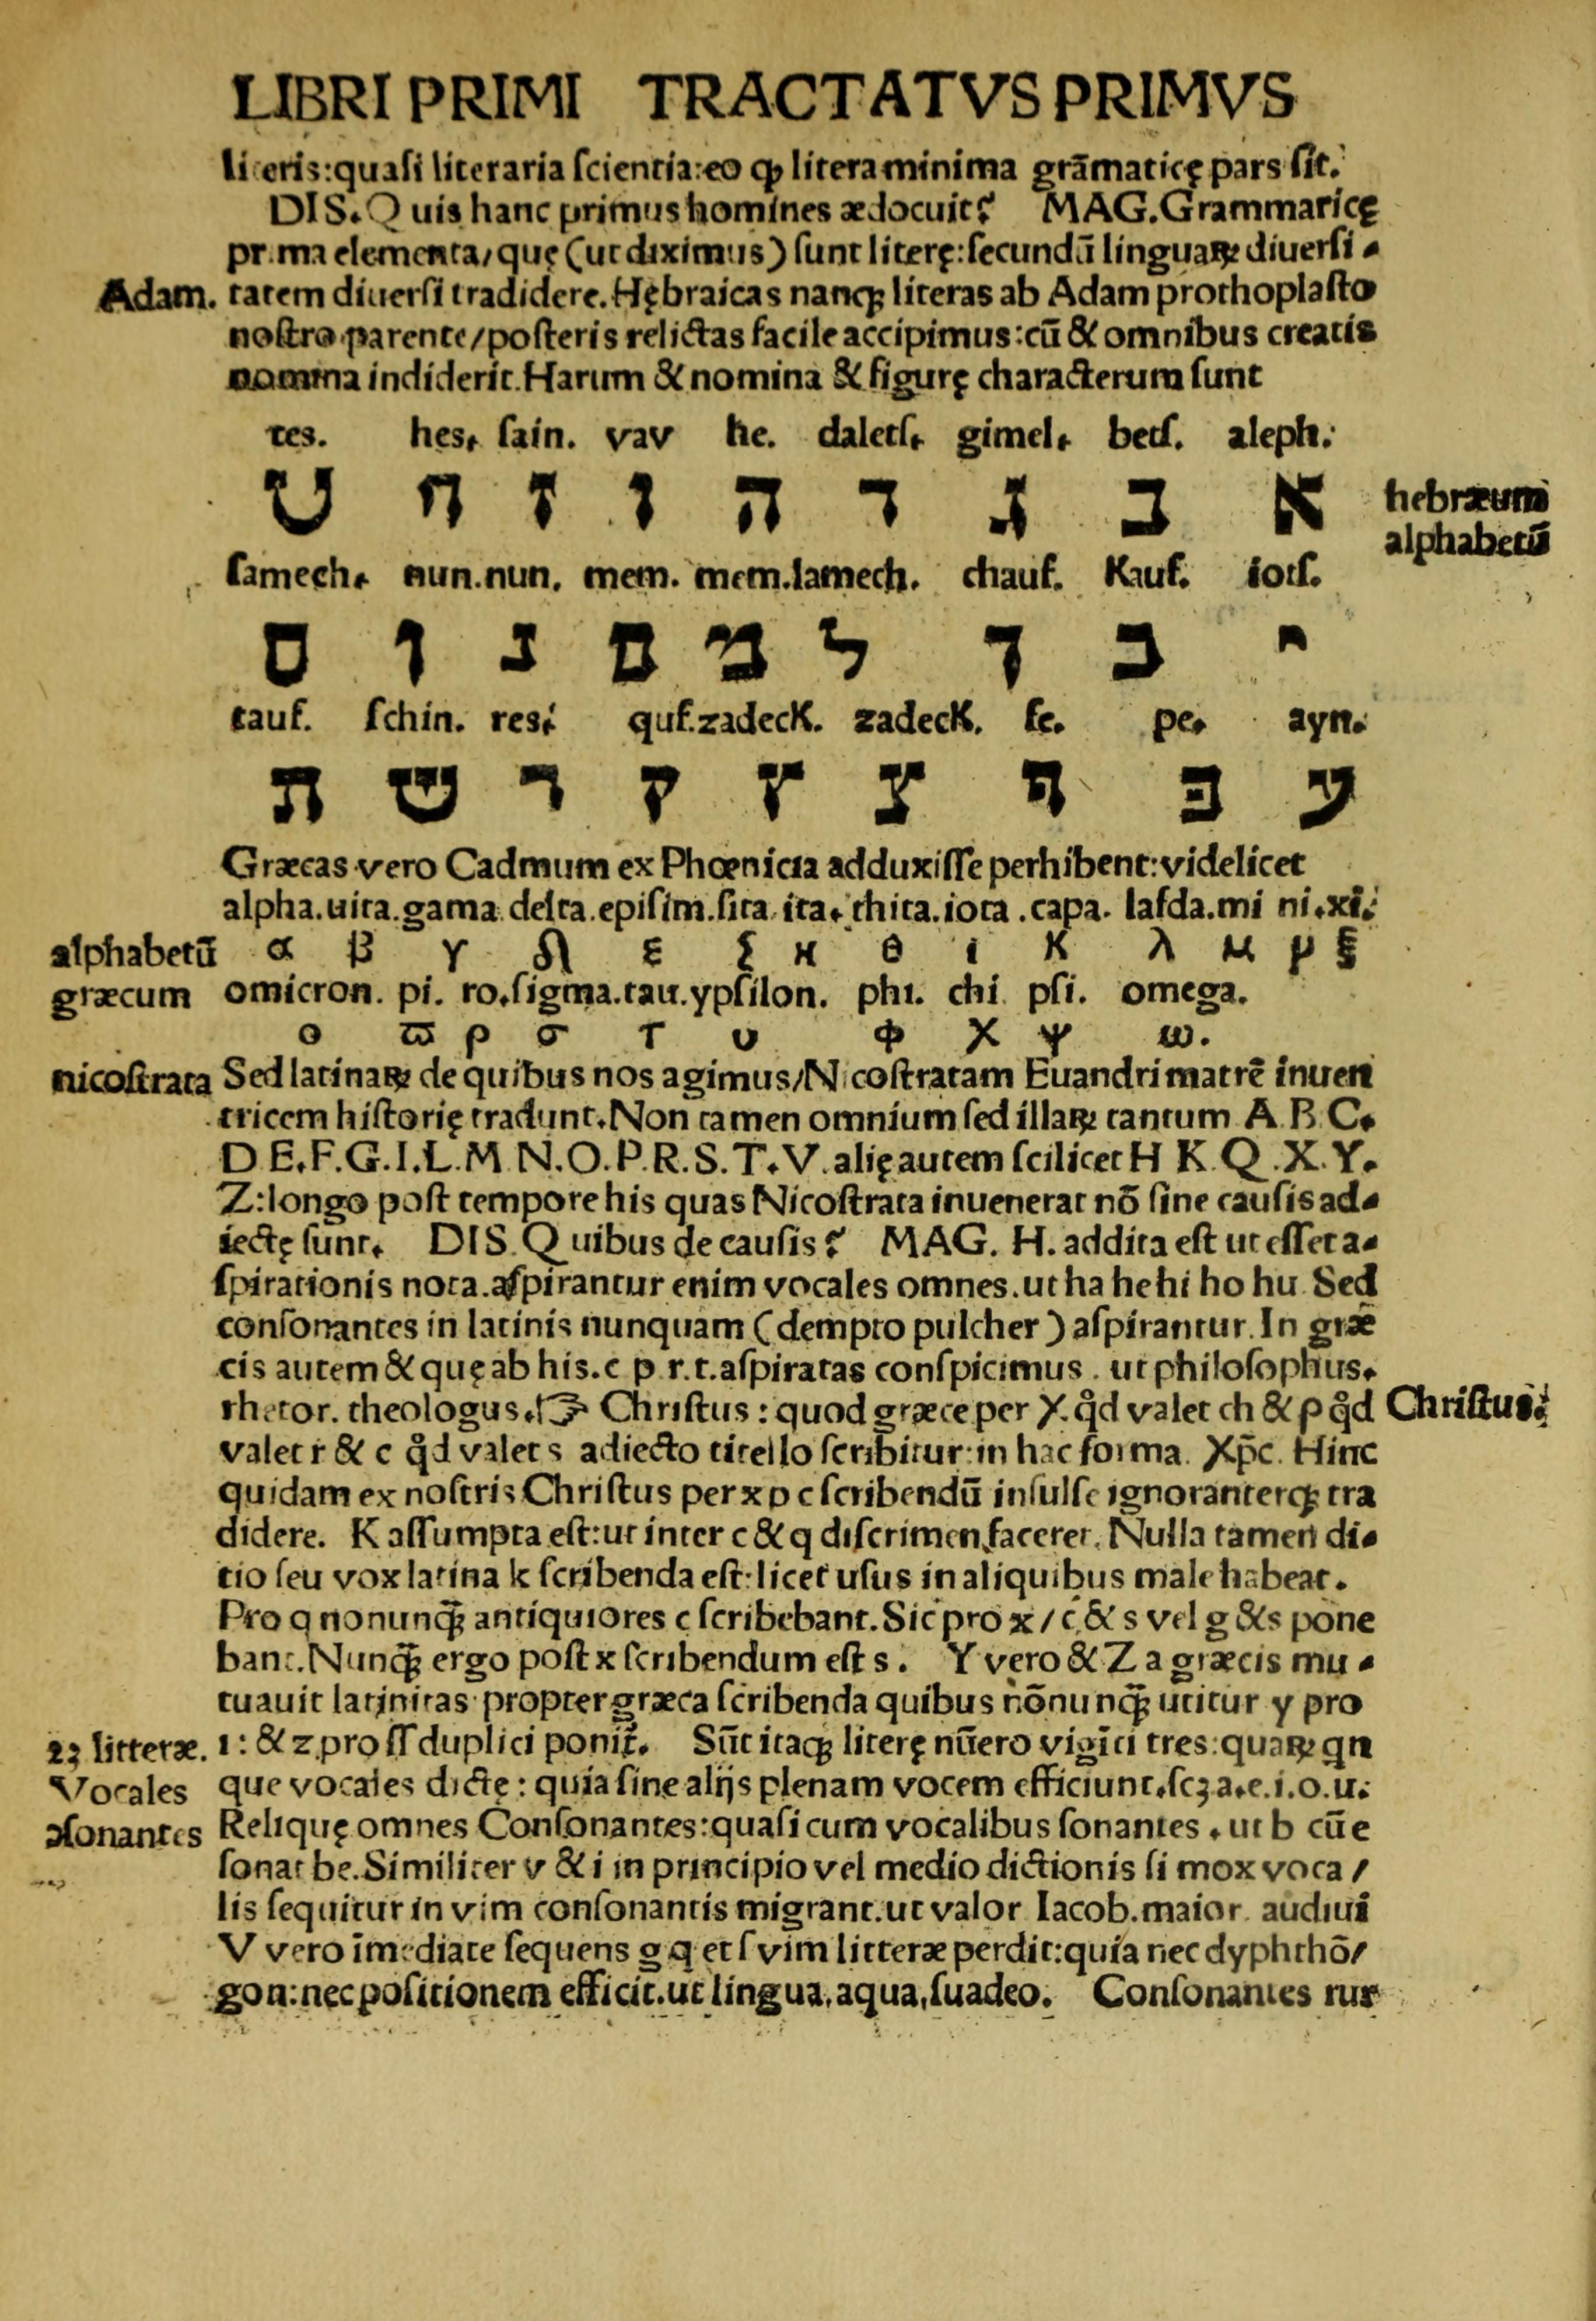 LIBRI PRIMI TRACTATVS PRIMVS
literis:quaſi literaria ſcientia:eo ꝙ litera minima grāmaticę pars ſit.
DIS. Quis hanc primus homines ædocuit? MAG. Grammaticę
prima elementa/quę (ut diximus) ſunt literę:ſecundū linguaꝝ diuerſi-
Adam. tatem diuerſi tradidere. Hębraicas nanqꝫ literas ab Adam prothoplaſto
noſtro parente/poſteris relictas facile accipimus:cū & omnibus creatis
nomina indiderit. Harum & nomina & figurę characterum ſunt
tes. hes. ſain. vav he. daletſ. gimel. betſ. aleph.
ט ח ז ו ה ד ג ב א
hebræum
alphabetū
ſamech. nun. nun. mem. mem. lamech. chauf. Kauf. iotſ.
ס ן נ ם מ ל ך כ י
tauf. ſchin. res. quf. zadecK. zadecK. fe. pe. ayn.
ת ש ר ק ץ צ ף פ ע
Græcas vero Cadmum ex Phœnicia adduxiſſe perhibent:videlicet
alpha. uita. gama. delta. epiſim. ſita. ita. thita. iota. capa. lafda. mi ni. xi.
alphabetū α β γ δ ε ξ η θ ι κ λ μ ν ξ
græcum omicron. pi. ro. ſigma. tau. ypſilon. phi. chi. pſi. omega.
ο ϖ ρ σ τ υ φ χ ψ ω.
nicoſtrata Sed latinaꝝ de quibus nos agimus/Nicoſtratam Euandri matrē inuen
tricem hiſtorię tradunt. Non tamen omnium ſed illaꝝ tantum A B C.
D E. F. G. I. L. M N. O. P. R. S. T. V. alię autem ſcilicet H K Q. X. Y.
Z:longo poſt tempore his quas Nicoſtrata inuenerat nō ſine cauſis ad-
iectę ſunt. DIS. Quibus de cauſis? MAG. H. addita eſt ut eſſet a-
ſpirationis nota. aſpirantur enim vocales omnes. ut ha he hi ho hu. Sed
conſonantes in latinis nunquam (dempto pulcher) aſpirantur. In græ
cis autem & quę ab his. c p. r. t. aſpiratas conſpicimus. ut philoſophus.
rhetor. theologus. ☞ Chriſtus: quod græce per χ. qd̄ valet ch & ρ qd̄ Chriſtus.
valet r & c qd̄ valet s adiecto titello ſcribitur in hac forma. Xp̄c. Hinc
quidam ex noſtris Chriſtus per x p c ſcribendū inſulſe ignoranterqꝫ tra
didere. K aſſumpta eſt:ut inter c & q diſcrimen faceret. Nulla tamen di-
tio ſeu vox latina k ſcribenda eſt:licet uſus in aliquibus male habeat.
Pro q nonunqꝫ̄ antiquiores c ſcribebant. Sic pro x / c & s vel g & s pone
bant. Nunqꝫ̄ ergo poſt x ſcribendum eſt s. Y vero & Z a græcis mu-
tuauit latinitas propter græca ſcribenda quibus nōnunqꝫ̄ utitur y pro
23 litteræ. i: & z pro ſſ duplici ponit̄. Sūt itaqꝫ literę nūero vigīti tres:quaꝝ qn
Vocales que vocales dictę: quia ſine alijs plenam vocem efficiunt. ſcꝫ a. e. i. o. u.
ↄſonantes Reliquę omnes Conſonantes:quaſi cum vocalibus ſonantes. ut b cū e
ſonat be. Similiter v & i in principio vel medio dictionis ſi mox voca/
lis ſequitur in vim conſonantis migrant. ut valor Iacob. maior. audiui
V vero īmediate ſequens g q et ſ vim litteræ perdit:quia nec dyphthō/
gon:nec poſitionem efficit. ut lingua, aqua, ſuadeo. Conſonantes rur